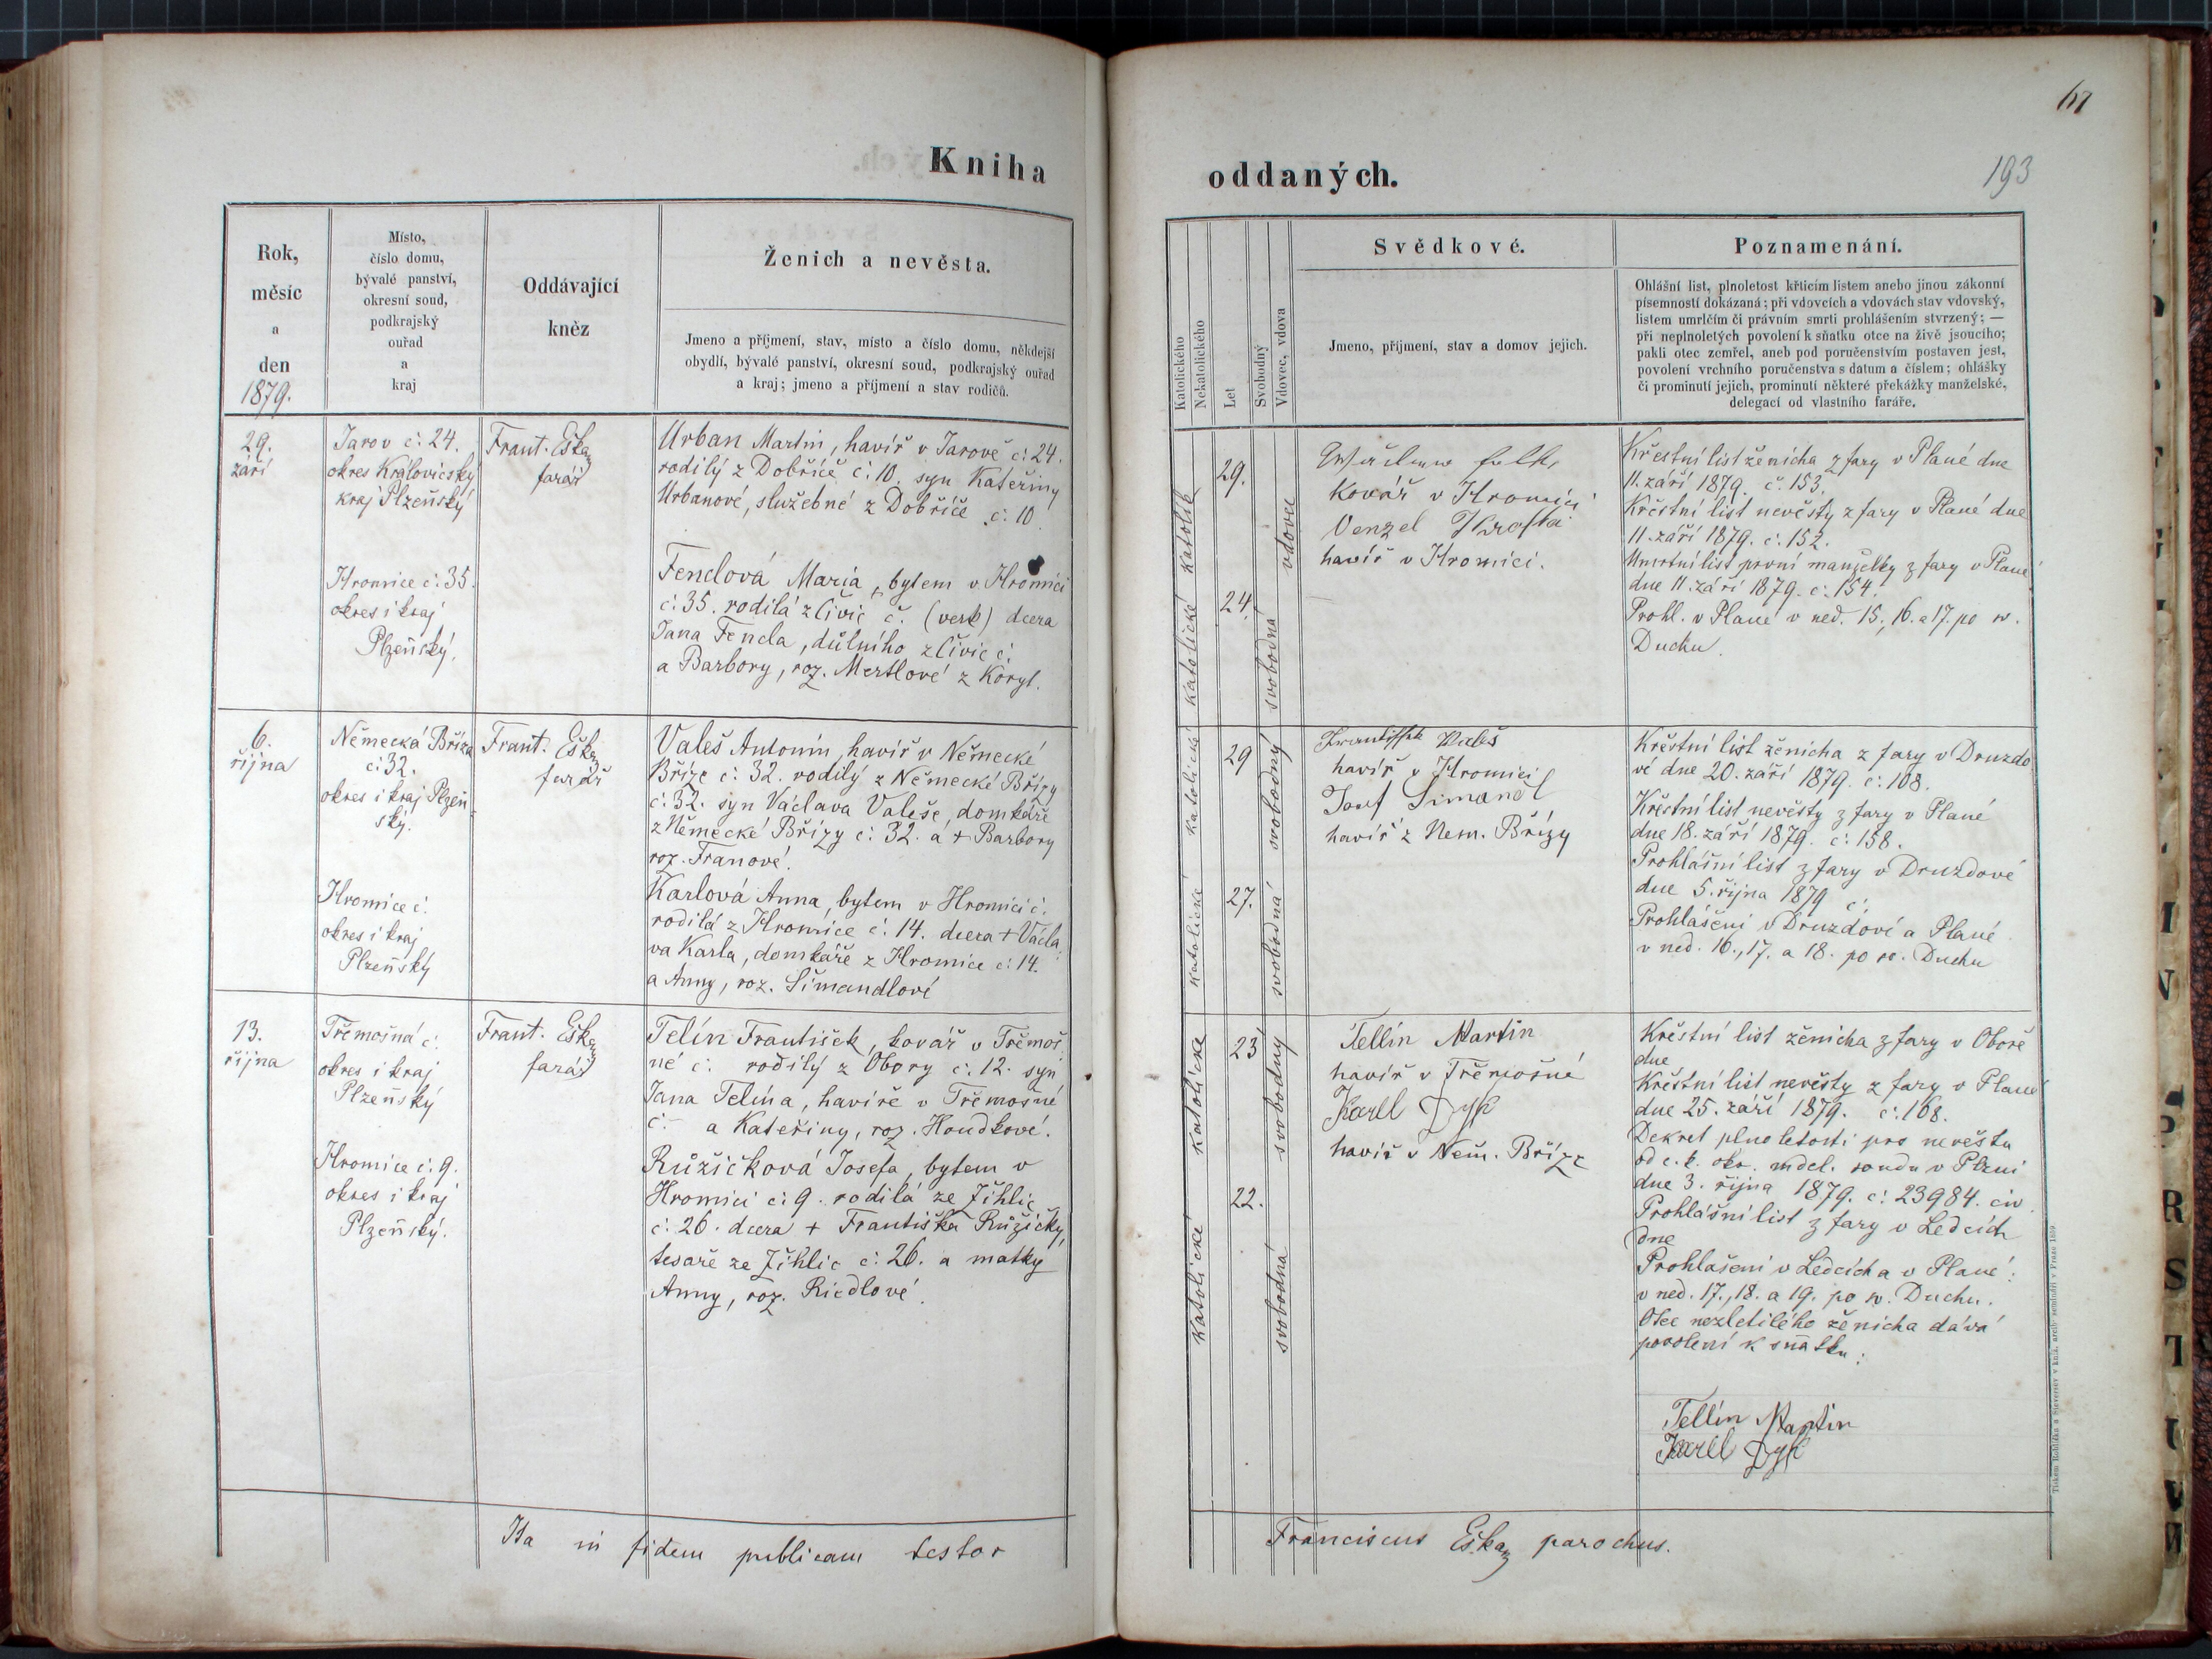 Kniha
oddaných.
67
193
Rok,
měsíc
a
den
1879.
Místo,
číslo domu,
bývalé panství,
okresní soud,
podkrajský
ouřad
a
kraj
Oddávající
kněz
Ženich a nevěsta.
Jmeno a příjmení, stav, místo a číslo domu, někdejší
obydlí, bývalé panství, okresní soud, podkrajský ouřad
a kraj; jmeno a příjmení a stav rodičů.
Katolického
Nekatolického
Let
Svobodný
Vdovec, vdova
Svědkové.
Jmeno, příjmení, stav a domov jejich.
Poznamenání.
Ohlášní list, plnoletost křticím listem anebo jinou zákonní
písemností dokázaná; při vdovcích a vdovách stav vdovský,
listem umrlčím či právním smrti prohlášením stvrzený; —
při neplnoletých povolení k sňatku otce na živě jsoucího;
pakli otec zemřel, aneb pod poručenstvím postaven jest,
povolení vrchního poručenstva s datum a číslem; ohlášky
či prominutí jejich, prominutí některé překážky manželské,
delegací od vlastního faráře.
29.
září
Jarov č: 24.
okres Královický
kraj Plzeňský
Frant. Eška
farář
Urban Martin, havíř v Jarově č: 24.
rodilý z Dobříče č: 10. syn Kateřiny
Urbanové, služebné z Dobříče č: 10.
Hromice č: 35.
okres i kraj
Plzeňský.
Fenclová Maria, bytem v Hromici
č: 35. rodilá z Čivic č. (verb) dcera
Jana Fencla, důlního z Čivic č:
a Barbory, roz. Mertlové z Koryt.
katolík
katolické
29.
24.
vdovec
svobodná
kovář v Hromici
Venzel
havíř v Hromici.
Křestní list ženicha z fary v Plané dne
11. září 1879. č. 153.
Křestní list nevěsty z fary v Plané dne
11. září 1879. č: 152.
Umrtní list první manželky z fary v Plané
dne 11. září 1879. č: 154.
Prohl. v Plané v ned. 15., 16. a 17. po sv.
Duchu.
6.
října
Německá Bříza
č: 32.
okres i kraj Plzeň
ský.
Frant. Eška
farář
Valeš Antonín, havíř v Německé
Bříze č: 32. rodilý z Německé Břízy
č: 32. syn Václava Valeše, domkáře
z Německé Břízy č: 32. a + Barbory
roz. Franové.
Hromice č:
okres i kraj
Plzeňský
Karlová Anna, bytem v Hromici č:
rodilá z Hromice č: 14. dcera + Václa
va Karla, domkáře z Hromice č: 14.
a Anny, roz. Šimandlové
katolické
katolické
29
27.
svobodný
svobodná
Frantisek Waleš
havíř v Hromici
Josef Šimandl
havíř z Nem. Břízy
Křestní list ženicha z fary v Druzdo
vě dne 20. září 1879. č: 108.
Křestní list nevěsty z fary v Plané
dne 18. září 1879. č: 158.
Prohlášní list z fary v Druzdově
dne 5. října 1879 č:
Prohlášení v Druzdově a Plané
v ned. 16., 17. a 18. po sv. Duchu
13.
října
Třemošná č:
okres i kraj
Plzeňský
Frant. Eška
farář
Telín František, kovář v Třemoš
né č: rodilý z Obory č: 12. syn
Jana Telína, havíře v Třemošné
č: a Kateřiny, roz. Houdkové.
Hromice č: 9.
okres i kraj
Plzeňský.
Růžičková Josefa, bytem v
Hromici č: 9. rodilá ze Žihlic
č: 26. dcera + Františka Růžičky,
tesaře ze Žihlic č: 26. a matky
Anny, roz. Riedlové.
katolické
katolické
23
22.
svobodný
svobodná
Tellín Martin
havíř v Třemošné
Karel Dyk
havíř v Něm. Bříze
Křestní list ženicha z fary v Oboře
dne
Křestní list nevěsty z fary v Plané
dne 25. září 1879. č: 168.
Dekret plnoletosti pro nevěstu
od c. k. okr. mdel. soudu v Plzni
dne 3. října 1879. č: 23984. civ.
Prohlášní list z fary v Ledcích
dne
Prohlášení v Ledcích a v Plané:
v ned. 17., 18. a 19. po sv. Duchu.
Otec nezletilého ženicha dává
povolení k sňatku:
Tellín Martin
Karel Dyk
Ita in fidem publicam testor
Franciscus Eška parochus.